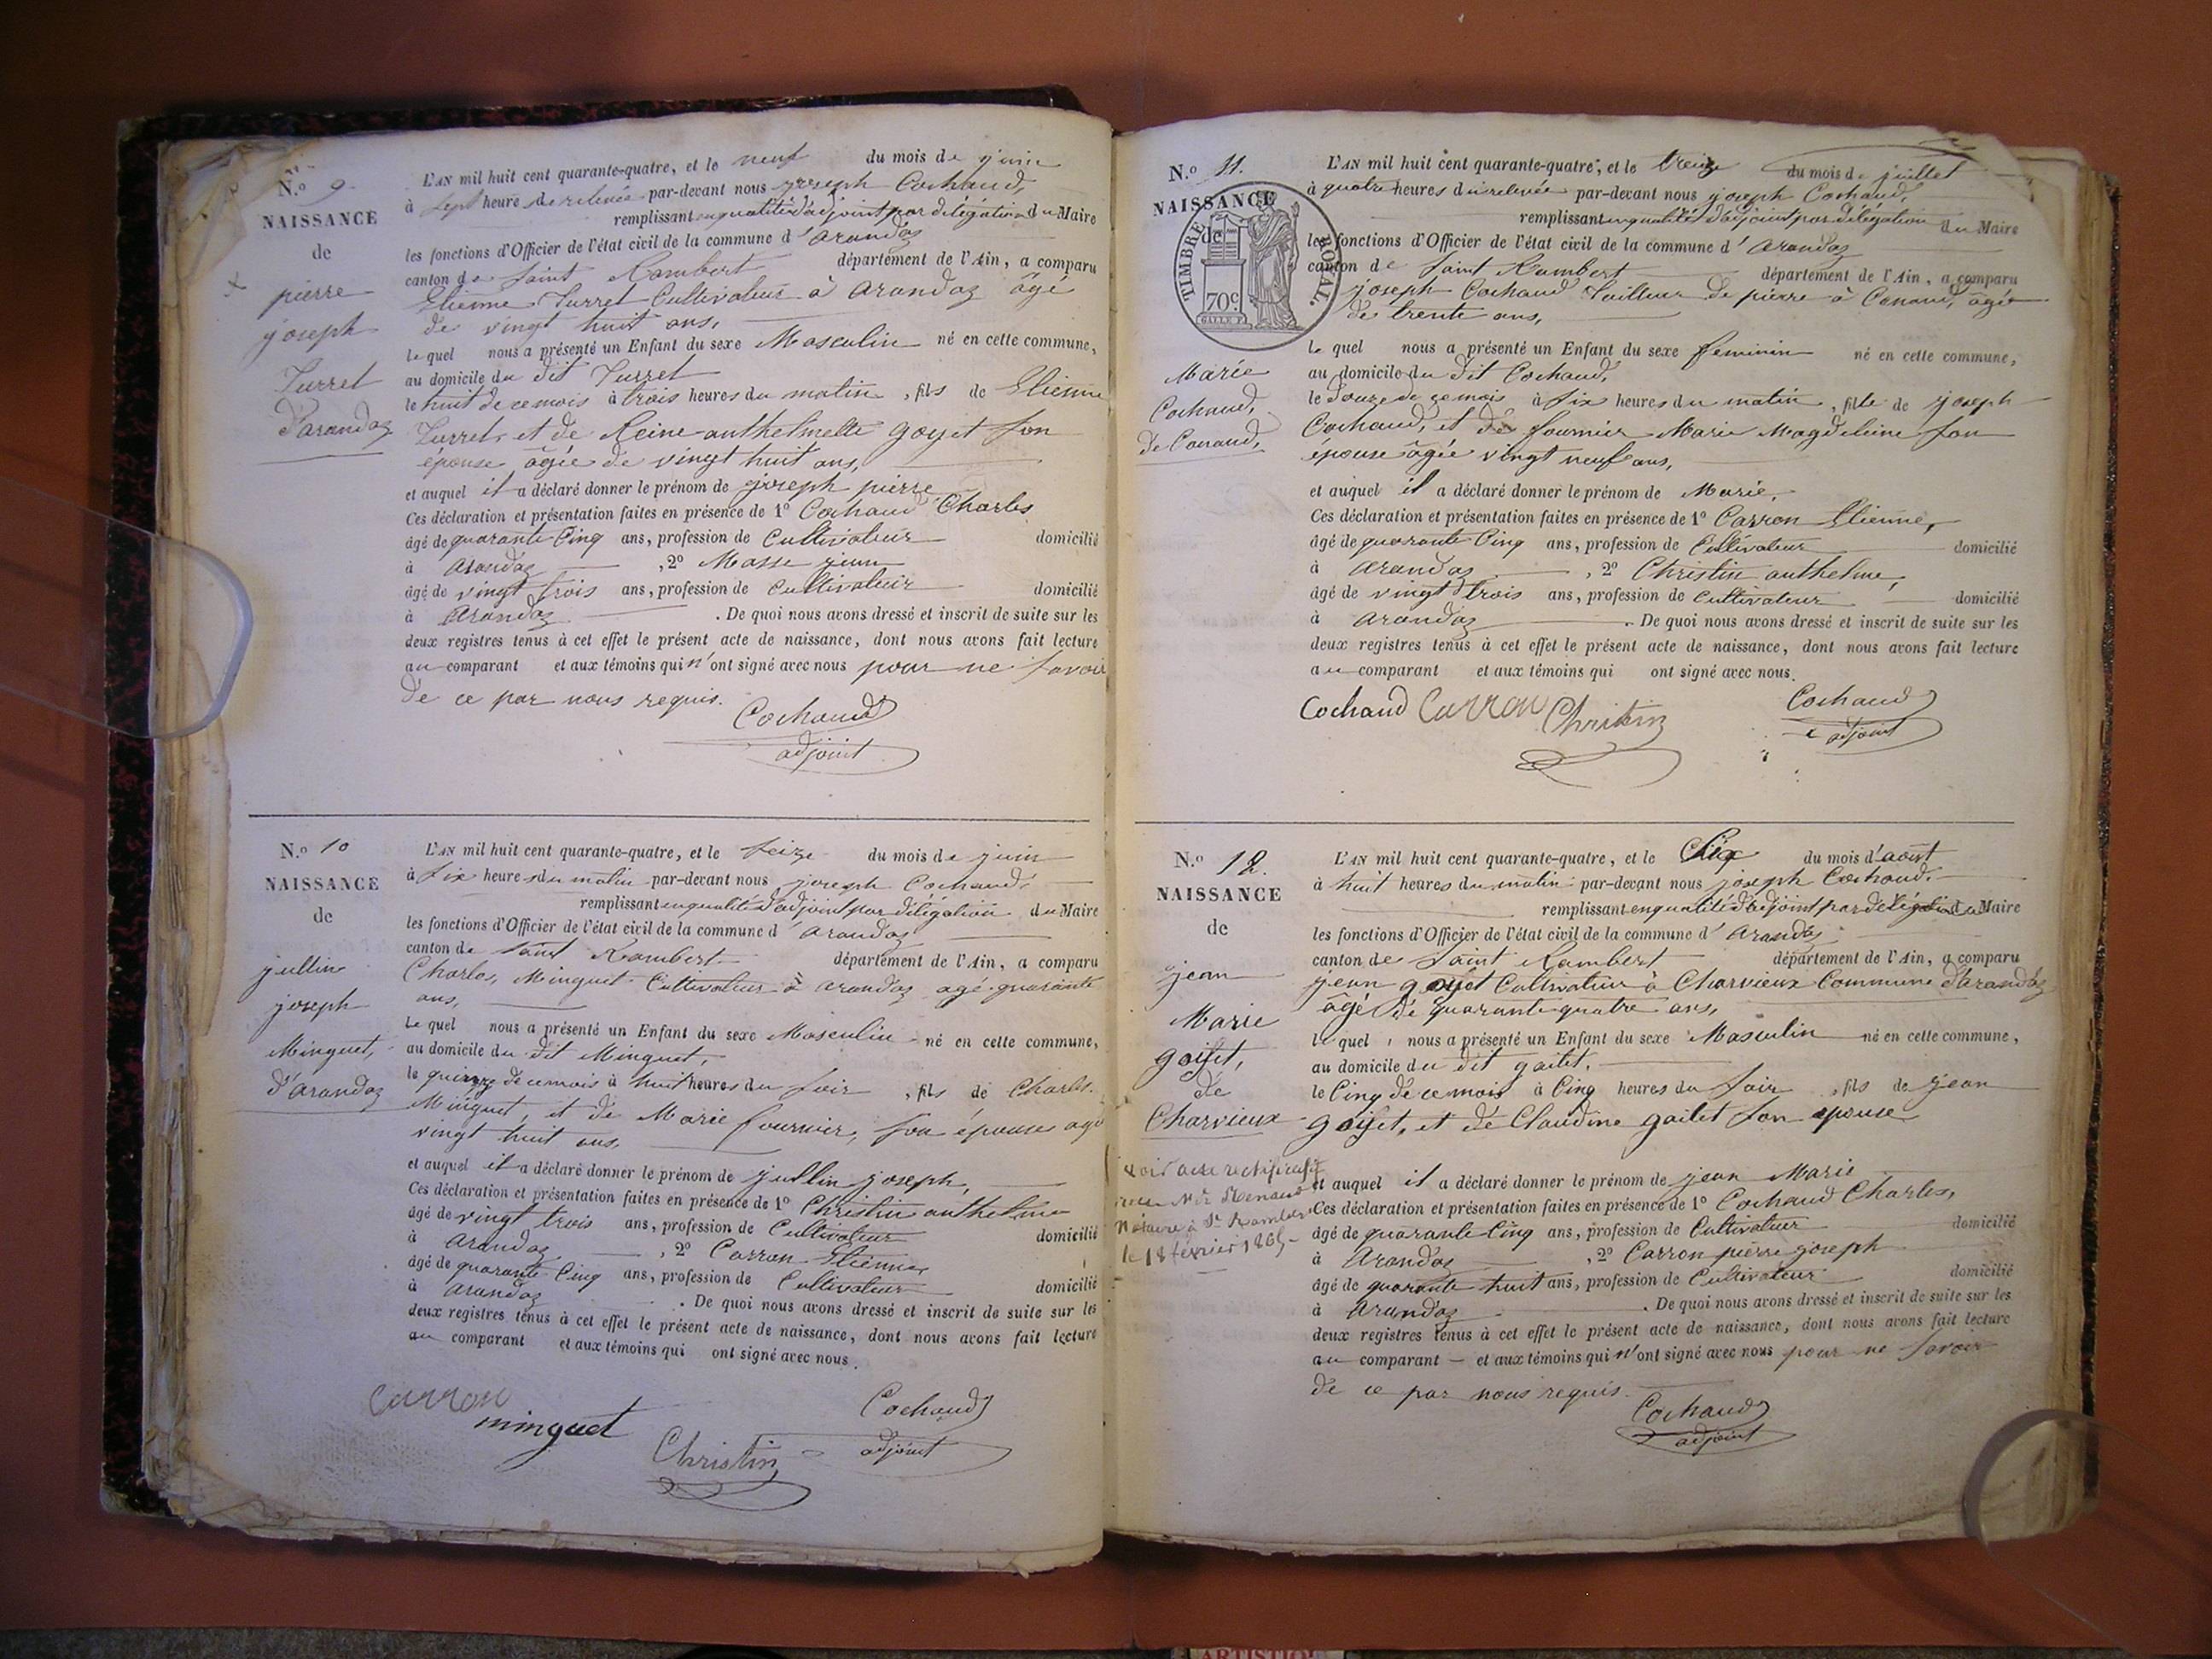 N.o 9
NAISSANCE
de
pierre
joseph
Jurret
d'arandaz
L'AN mil huit cent quarante-quatre, et le neuf du mois de juin
à sept heure de relevée par-devant nous joseph Cochaud,
remplissant en qualité d'adjoint par délégation du Maire
les fonctions d'Officier de l'état civil de la commune d'arandaz
canton de Saint Rambert département de l'Ain, a comparu
Etienne Jurret Cultivateur à arandaz âgé
de vingt huit ans,
le quel nous a présenté un Enfant du sexe Masculin né en cette commune,
au domicile du dit Jurret
le huit de ce mois à trois heures du matin, fils de Etienne
Jurret, et de Reine anthelmette goyet son
épouse âgée de vingt huit ans,
et auquel il a déclaré donner le prénom de joseph pierre
Ces déclaration et présentation faites en présence de 1o Cochaud Charles
âgé de quarante Cinq ans, profession de Cultivateur domicilié
à arandaz, 2o Masse jean
âgé de vingt trois ans, profession de Cultivateur domicilié
à arandaz. De quoi nous avons dressé et inscrit de suite sur les
deux registres tenus à cet effet le présent acte de naissance, dont nous avons fait lecture
au comparant et aux témoins qui n'ont signé avec nous pour ne savoir
de ce par nous requis.
Cochaud
adjoint
N.o 10
NAISSANCE
de
jullin
joseph
Minguet,
d'arandaz
L'AN mil huit cent quarante-quatre, et le seize du mois de juin
à six heures du matin par-devant nous joseph Cochaud,
remplissant en qualité d'adjoint par délégation du Maire
les fonctions d'Officier de l'état civil de la commune d'arandaz
canton de saint Rambert département de l'Ain, a comparu
Charles, Minguet Cultivateur à arandaz agé quarante
ans,
le quel nous a présenté un Enfant du sexe Masculin né en cette commune,
au domicile du dit Minguet,
le quinze de ce mois à huit heures du soir, fils de Charles
Minguet, et de Marie fournier, son épouse agé
vingt huit ans,
et auquel il a déclaré donner le prénom de jullin joseph,
Ces déclaration et présentation faites en présence de 1o Christin anthelme
âgé de vingt trois ans, profession de Cultivateur domicilié
à arandaz, 2o Carron Etienne,
âgé de quarante Cinq ans, profession de Cultivateur domicilié
à arandaz. De quoi nous avons dressé et inscrit de suite sur les
deux registres tenus à cet effet le présent acte de naissance, dont nous avons fait lecture
au comparant et aux témoins qui ont signé avec nous.
Carron
minguet
Christin
Cochaud
adjoint
N.o 11.
NAISSANCE
de
TIMBRE ROYAL.
70c.
Marie
Cochaud,
de Conand,
L'AN mil huit cent quarante-quatre, et le treize du mois de juillet
à quatre heures du relevée par-devant nous joseph Cochaud,
remplissant en qualité d'adjoint par délégation du Maire
les fonctions d'Officier de l'état civil de la commune d'arandaz
canton de Saint Rambert département de l'Ain, a comparu
joseph Cochaud Tailleur de pierre à Conand, âgé
de trente ans,
le quel nous a présenté un Enfant du sexe feminin né en cette commune,
au domicile du dit Cochaud,
le douze de ce mois à six heures du matin, fille de joseph
Cochaud, et de fournier Marie Magdeleine son
épouse âgée vingt neuf ans,
et auquel il a déclaré donner le prénom de Marie,
Ces déclaration et présentation faites en présence de 1o Carron Etienne,
âgé de quarante Cinq ans, profession de Cultivateur domicilié
à arandaz, 2o Christin anthelme,
âgé de vingt trois ans, profession de Cultivateur domicilié
à arandaz. De quoi nous avons dressé et inscrit de suite sur les
deux registres tenus à cet effet le présent acte de naissance, dont nous avons fait lecture
au comparant et aux témoins qui ont signé avec nous.
Cochaud Carron Christin
Cochaud
adjoint
N.o 12.
NAISSANCE
de
jean
Marie
goiffet,
de
Charvieux
voir acte rectificatif
Me Renaud
Notaire à St Rambert
le 18 février 1865
L'AN mil huit cent quarante-quatre, et le Six du mois d'août
à huit heures du matin par-devant nous joseph Cochaud.
remplissant en qualité d'adjoint par délégation du Maire
les fonctions d'Officier de l'état civil de la commune d'Arandaz
canton de Saint Rambert département de l'Ain, a comparu
jean goiffet Cultivateur à Charvieux Commune d'arandaz
âgé de quarante quatre ans,
le quel nous a présenté un Enfant du sexe Masculin né en cette commune,
au domicile du dit goitet.
le Cinq de ce mois à Cinq heures du soir, fils de jean
goiffet, et de Claudine goilet son epouse
et auquel il a déclaré donner le prénom de jean Marie
Ces déclaration et présentation faites en présence de 1o Cochaud Charles,
âgé de quarante Cinq ans, profession de Cultivateur domicilié
à Arandaz, 2o Carron pierre joseph
âgé de quarante huit ans, profession de Cultivateur domicilié
à Arandaz. De quoi nous avons dressé et inscrit de suite sur les
deux registres tenus à cet effet le présent acte de naissance, dont nous avons fait lecture
au comparant et aux témoins qui n'ont signé avec nous pour ne savoir
de ce par nous requis.
Cochaud
adjoint